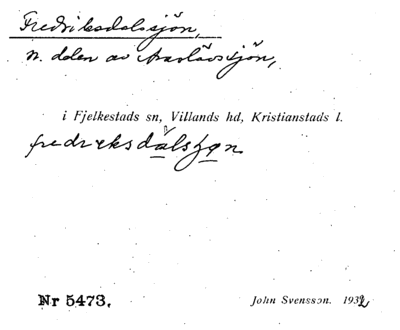 Fredriksdalssjön,
n. delen av Araslövssjön,
i Fjelkestads sn, Villands hd, Kristianstads l.
fredreksdalsʃøn
Nr 5473.
John Svensson. 1932